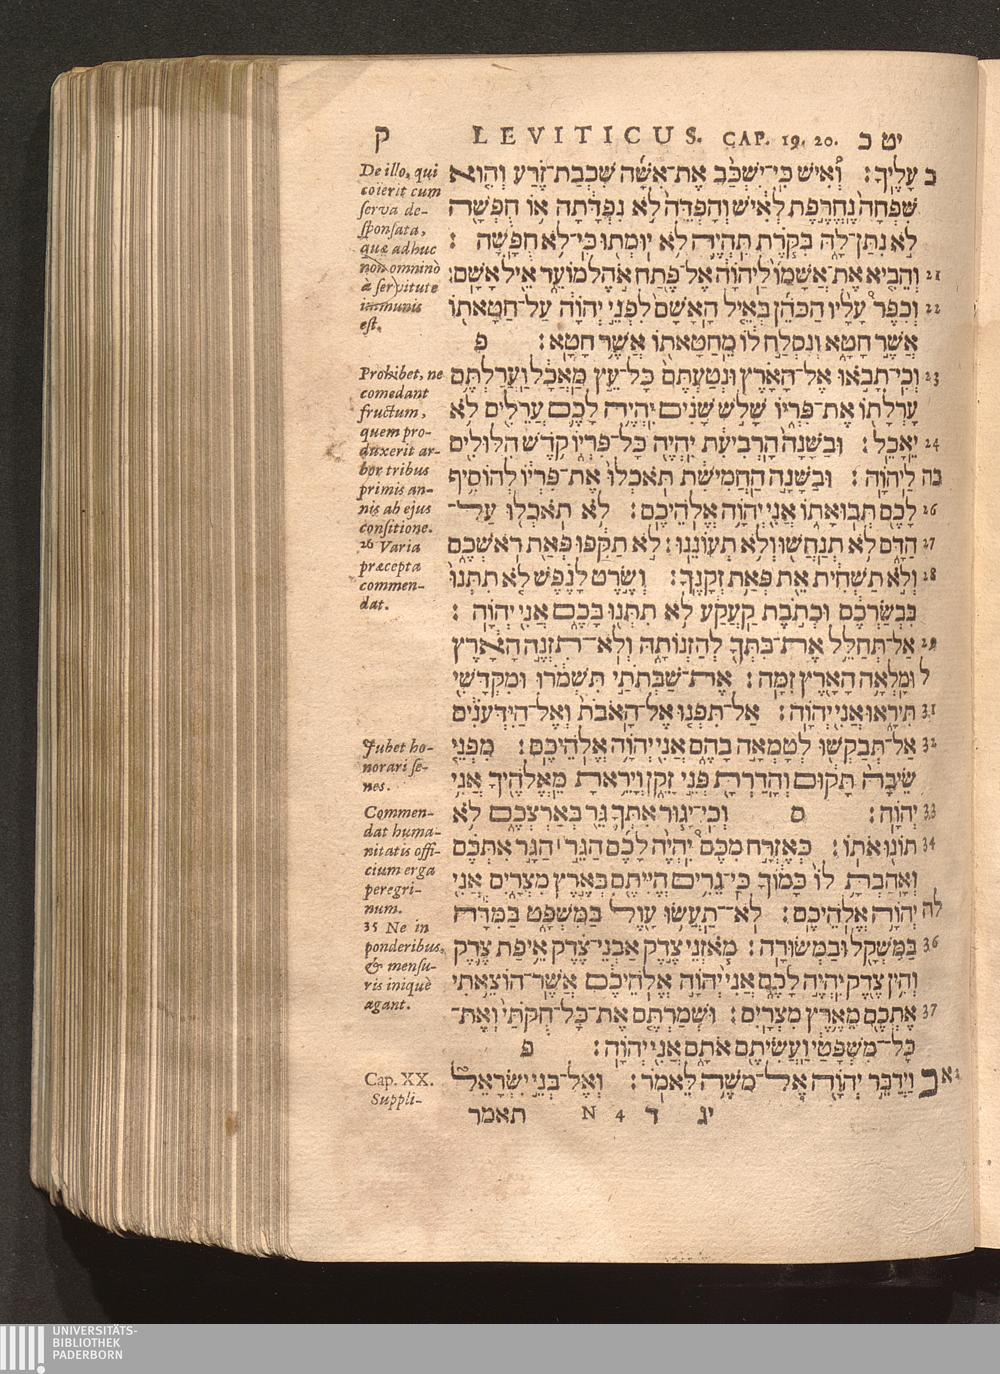 ק LEVITICUS. CAP. 19. 20. יט כ
De illo, qui
coierit cum
serva de-
sponsata,
quæ adhuc
nõ omninò
à servitute
immunis
est.
Prohibet, ne
comedant
fructum,
quem pro-
duxerit ar-
bor tribus
primis an-
nis ab ejus
consitione.
26 Varia
præcepta
commen-
dat.
Jubet ho-
norari se-
nes.
Commen-
dat huma-
nitatis offi-
cium erga
peregri-
num.
35 Ne in
ponderibus,
& mensu-
ris iniquè
agant.
Cap. XX.
Suppli-
כ עָלֶיךָ׃ וְאִישׁ כִּי־יִשְׁכַּב אֶת־אִשָּׁה שִׁכְבַת־זֶרַע וְהִוא
שִׁפְחָה נֶחֱרֶפֶת לְאִישׁ וְהָפְדֵּה לֹא נִפְדָּתָה אוֹ חֻפְשָׁה
לֹא נִתַּן־לָהּ בִּקֹּרֶת תִּהְיֶה לֹא יוּמְתוּ כִּי־לֹא חֻפָּשָׁה׃
21 וְהֵבִיא אֶת־אֲשָׁמוֹ לַיהוָה אֶל־פֶּתַח אֹהֶל מוֹעֵד אֵיל אָשָׁם׃
22 וְכִפֶּר עָלָיו הַכֹּהֵן בְּאֵיל הָאָשָׁם לִפְנֵי יְהוָה עַל־חַטָּאתוֹ
אֲשֶׁר חָטָא וְנִסְלַח לוֹ מֵחַטָּאתוֹ אֲשֶׁר חָטָא׃ פ
23 וְכִי־תָבֹאוּ אֶל־הָאָרֶץ וּנְטַעְתֶּם כָּל־עֵץ מַאֲכָל וַעֲרַלְתֶּם
עָרְלָתוֹ אֶת־פִּרְיוֹ שָׁלֹשׁ שָׁנִים יִהְיֶה לָכֶם עֲרֵלִים לֹא
24 יֵאָכֵל׃ וּבַשָּׁנָה הָרְבִיעִת יִהְיֶה כָּל־פִּרְיוֹ קֹדֶשׁ הִלּוּלִים
כה לַיהוָה׃ וּבַשָּׁנָה הַחֲמִישִׁת תֹּאכְלוּ אֶת־פִּרְיוֹ לְהוֹסִיף
26 לָכֶם תְּבוּאָתוֹ אֲנִי יְהוָה אֱלֹהֵיכֶם׃ לֹא תֹאכְלוּ עַל־
27 הַדָּם לֹא תְנַחֲשׁוּ וְלֹא תְעוֹנֵנוּ׃ לֹא תַקִּפוּ פְּאַת רֹאשְׁכֶם
28 וְלֹא תַשְׁחִית אֵת פְּאַת זְקָנֶךָ׃ וְשֶׂרֶט לָנֶפֶשׁ לֹא תִתְּנוּ
בִּבְשַׂרְכֶם וּכְתֹבֶת קַעֲקַע לֹא תִתְּנוּ בָּכֶם אֲנִי יְהוָה׃
29 אַל־תְּחַלֵּל אֶת־בִּתְּךָ לְהַזְנוֹתָהּ וְלֹא־תִזְנֶה הָאָרֶץ
ל וּמָלְאָה הָאָרֶץ זִמָּה׃ אֶת־שַׁבְּתֹתַי תִּשְׁמֹרוּ וּמִקְדָּשִׁי
31 תִּירָאוּ אֲנִי יְהוָה׃ אַל־תִּפְנוּ אֶל־הָאֹבֹת וְאֶל־הַיִּדְּעֹנִים
32 אַל־תְּבַקְשׁוּ לְטָמְאָה בָהֶם אֲנִי יְהוָה אֱלֹהֵיכֶם׃ מִפְּנֵי
שֵׂיבָה תָּקוּם וְהָדַרְתָּ פְּנֵי זָקֵן וְיָרֵאתָ מֵּאֱלֹהֶיךָ אֲנִי
33 יְהוָה׃ ס וְכִי־יָגוּר אִתְּךָ גֵּר בְּאַרְצְכֶם לֹא
34 תוֹנוּ אֹתוֹ׃ כְּאֶזְרָח מִכֶּם יִהְיֶה לָכֶם הַגֵּר הַגָּר אִתְּכֶם
וְאָהַבְתָּ לוֹ כָּמוֹךָ כִּי־גֵרִים הֱיִיתֶם בְּאֶרֶץ מִצְרָיִם אֲנִי
לה יְהוָה אֱלֹהֵיכֶם׃ לֹא־תַעֲשׂוּ עָוֶל בַּמִּשְׁפָּט בַּמִּדָּה
36 בַּמִּשְׁקָל וּבַמְּשׂוּרָה׃ מֹאזְנֵי צֶדֶק אַבְנֵי־צֶדֶק אֵיפַת צֶדֶק
וְהִין צֶדֶק יִהְיֶה לָכֶם אֲנִי יְהוָה אֱלֹהֵיכֶם אֲשֶׁר־הוֹצֵאתִי
37 אֶתְכֶם מֵאֶרֶץ מִצְרָיִם׃ וּשְׁמַרְתֶּם אֶת־כָּל־חֻקֹּתַי וְאֶת־
כָּל־מִשְׁפָּטַי וַעֲשִׂיתֶם אֹתָם אֲנִי יְהוָה׃ פ
א 2 כ וַיְדַבֵּר יְהוָה אֶל־מֹשֶׁה לֵּאמֹר׃ וְאֶל־בְּנֵי יִשְׂרָאֵל
יג ד N 4 תאמר
UNIVERSITÄTS-
BIBLIOTHEK
PADERBORN